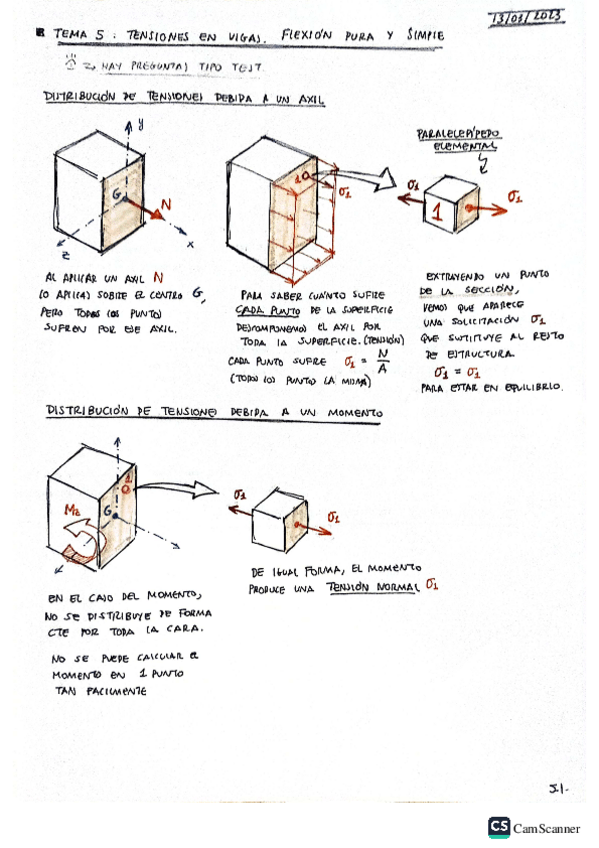 13/03/2023
TEMA 5: TENSIONES EN VIGAS. FLEXIÓN PURA Y SIMPLE
⇒ HAY PREGUNTAS TIPO TEST.
DISTRIBUCIÓN DE TENSIONES DEBIDA A UN AXIL
y
G
N
z
x
1
σ1
PARALELEPÍPEDO
ELEMENTAL
σ1
1
σ1
AL APLICAR UN AXIL N
LO APLICAS SOBRE EL CENTRO G,
PERO TODOS LOS PUNTOS
SUFREN POR ESE AXIL.
PARA SABER CUÁNTO SUFRE
CADA PUNTO DE LA SUPERFICIE
DESCOMPONEMOS EL AXIL POR
TODA LA SUPERFICIE. (TENSIÓN)
CADA PUNTO SUFRE σ1 = N/A
(TODOS LOS PUNTOS LA MISMA)
EXTRAYENDO UN PUNTO
DE LA SECCIÓN,
VEMOS QUE APARECE
UNA SOLICITACIÓN σ1
QUE SUSTITUYE AL RESTO
DE ESTRUCTURA.
σ1 = σ1
PARA ESTAR EN EQUILIBRIO.
DISTRIBUCIÓN DE TENSIONES DEBIDA A UN MOMENTO
1
G
Mz
σ1
σ1
DE IGUAL FORMA, EL MOMENTO
PRODUCE UNA TENSIÓN NORMAL σ1
EN EL CASO DEL MOMENTO,
NO SE DISTRIBUYE DE FORMA
CTE POR TODA LA CARA.
NO SE PUEDE CALCULAR EL
MOMENTO EN 1 PUNTO
TAN FACILMENTE
5.1.
CS CamScanner